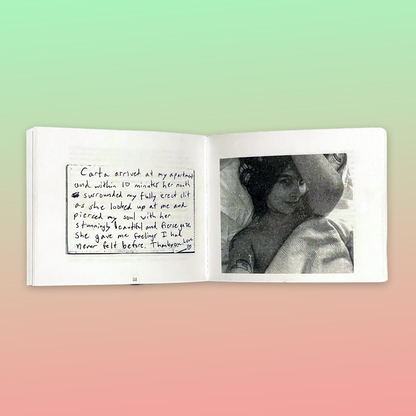 Carta arrived at my apartment
and within 10 minutes her mouth
surrounded my fully erect clit
as she looked up at me and
pierced my soul with her
stunningly beautiful and fierce gaze
She gave me feelings I had
never felt before. Thankyou
Love